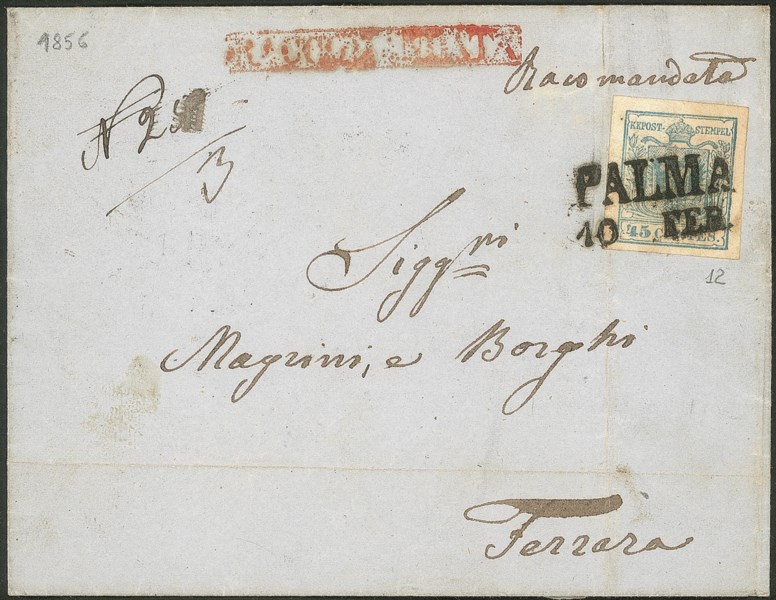 1856
Racomandata
N 2
/3
KEPOST-STEMPEL
PALMA
10 FEB.
45 CENTES.
12
Sigg.ri
Magrini, e Borghi
Ferrara